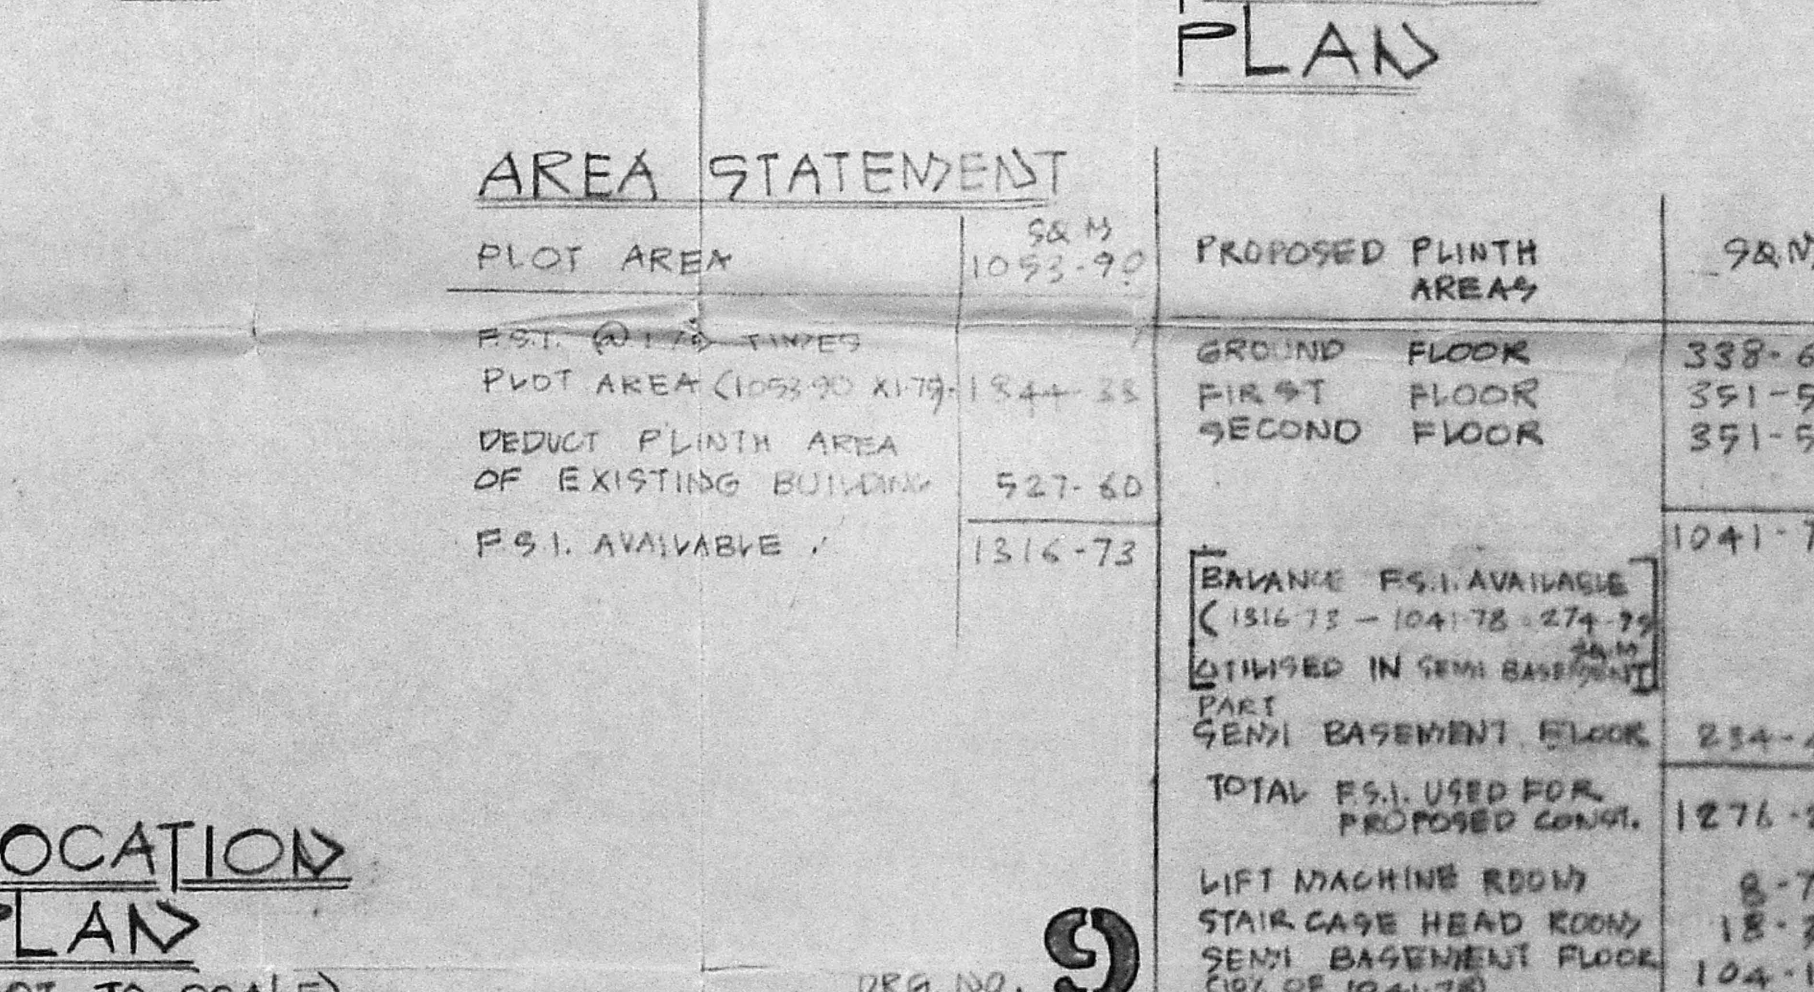 PLAN
AREA STATEMENT
SQ M
PLOT AREA 1053-90
F.S.I. @ 1.75 TIMES
PLOT AREA (1053.90 X1.75). 1844-33
DEDUCT PLINTH AREA
OF EXISTING BUILDING 527-60
F.S.I. AVAILABLE 1316-73
PROPOSED PLINTH SQ.M
AREAS
GROUND FLOOR 338-6
FIRST FLOOR 351-5
SECOND FLOOR 351-5
1041-7
BALANCE F.S.I. AVAILABLE
(1316.73 - 1041.78 = 274.95
SQ.M
UTILISED IN SEMI BASEMENT
PART
SEMI BASEMENT FLOOR 234-
TOTAL F.S.I. USED FOR
PROPOSED CONST. 1276-
LIFT MACHINE ROOM 8-7
STAIR CASE HEAD ROOM 18-
SEMI BASEMENT FLOOR 104-1
(10% OF 1041.78)
OCATION
PLAN
TO SCALE)
DRG NO. 9